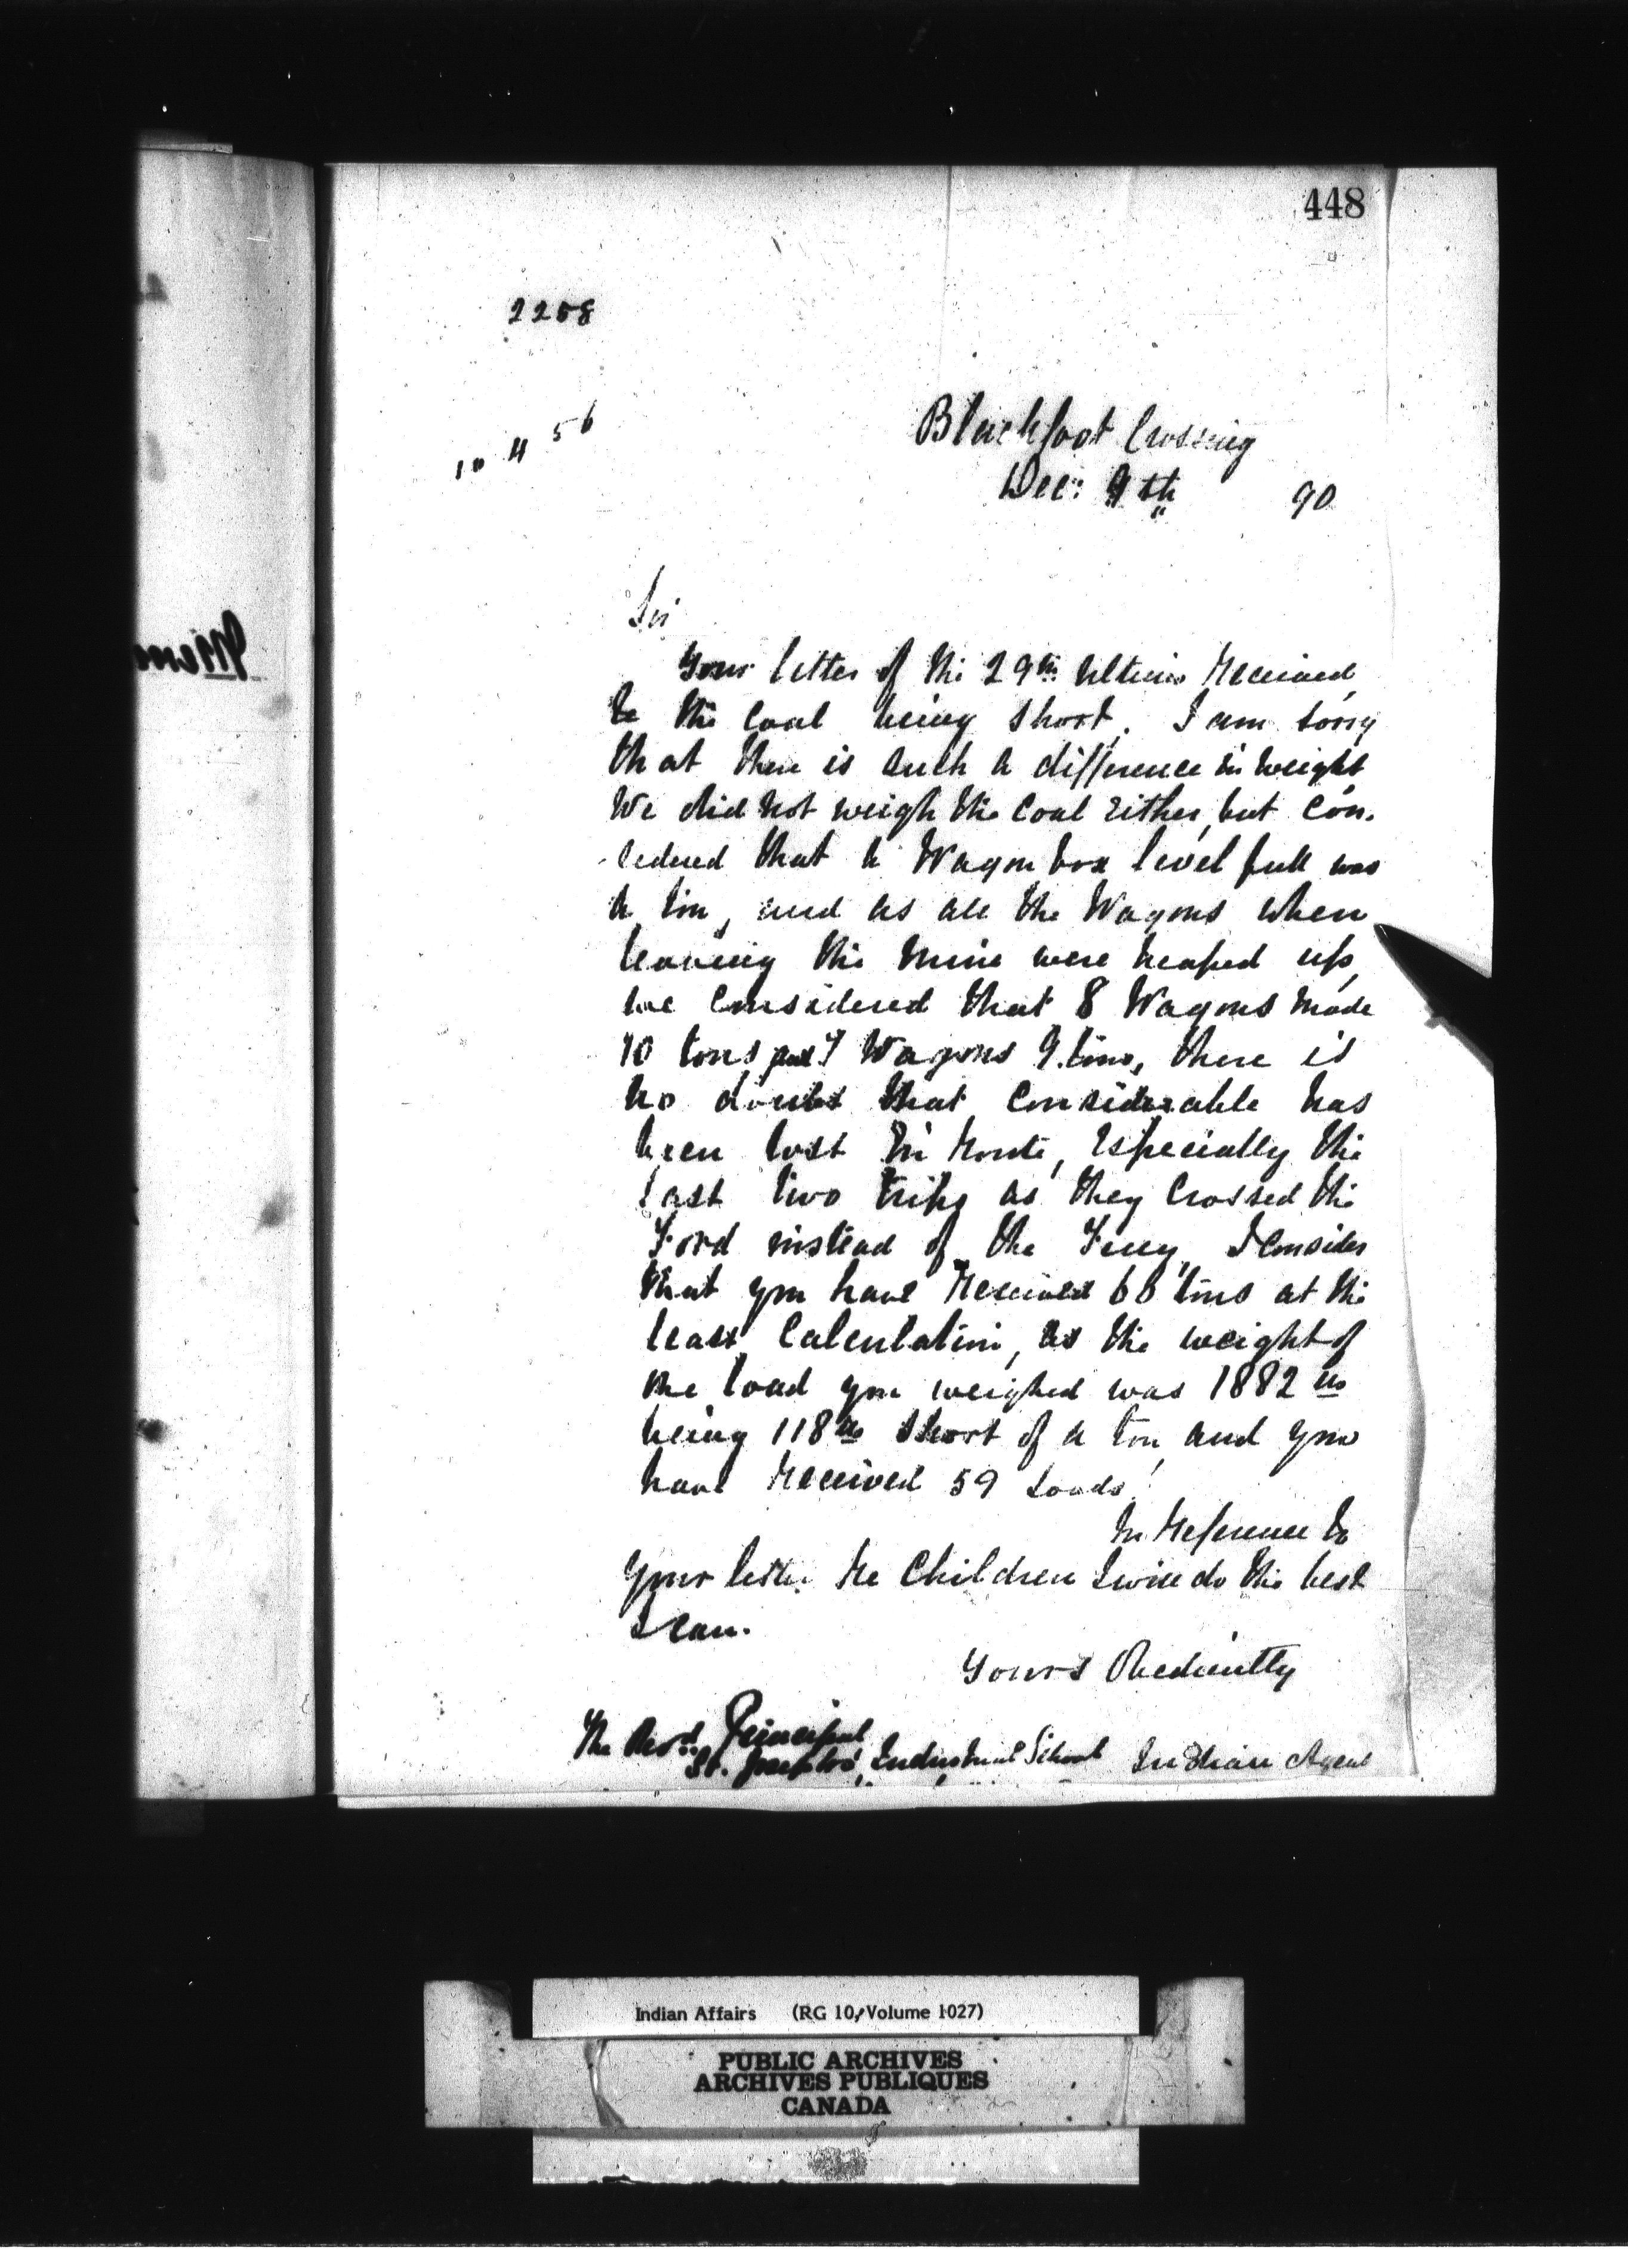 448
2258
10 4 56
Blackfoot Crossing
Dec: 9th 90
Sir
Your letter of the 29th Ultimo received
re the coal being short. I am sorry
that there is such a difference in weight
We did not weigh the coal either, but con-
sidered that a Wagon box level full was
a ton, and as all the Wagons when
leaving the mine were heaped up,
we considered that 8 Wagons made
10 tons, and 7 Wagons 9 tons, there is
no doubt that considerable has
been lost en route, especially the
last two trips as they crossed the
Ford instead of the Ferry, I consider
that you have received 60 tons at the
least calculation, as the weight of
the load you weighed was 1882 lbs
being 118 lbs short of a ton and you
have received 59 loads.
In reference to
your letter re Children I will do the best
I can.
Yours Obediently
The Revd. Principal
St. Joseph's Industrial School Indian Agent
Indian Affairs (RG 10, Volume 1027)
PUBLIC ARCHIVES
ARCHIVES PUBLIQUES
CANADA